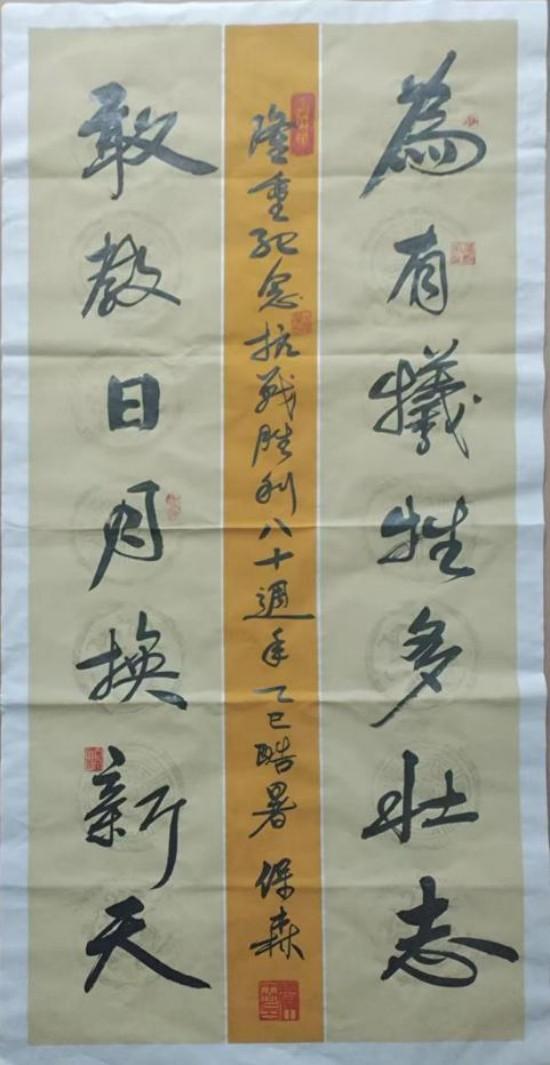 為有犧牲多壯志
隆重紀念抗戰勝利八十週年 乙巳酷暑 保森
敢教日月換新天